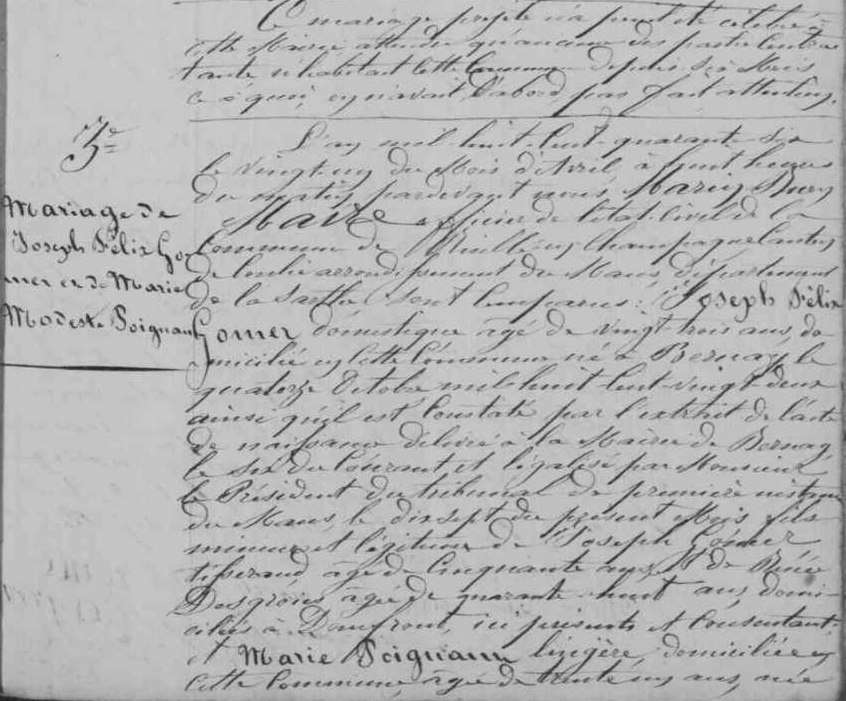 Ce mariage projeté n'a point été célébré à
cette Mairie attendu qu'aucune des parties contrac
tante n'habitait cette Commune depuis six Mois
ce à quoi on n'avait D'abord pas fait attention.
3e
Mariage de
Joseph Félix Go
mer et de Marie
Modeste Poignant
L'an mil huit-cent-quarante-six
le vingt-un du Mois d'Avril, à huit heures
du matin, pardevant nous
Maire officier de l'état-civil de la
Commune de Neuville en Champagne Canton
de Conlie arrondissement du Mans, département
de la Sarthe sont comparus: Joseph Félix
Gomer domestique agé de vingt trois ans, do
micilié en cette Commune né à Bernay le
quatorze Octobre mil huit cent-vingt deux
ainsi qu'il est constaté par l'extrait de l'acte
de naissance délivré à la Mairie de Bernay
le six du Courant et légalisé par Monsieur
le Président du tribunal de première instance
du Mans, le dix sept du présent Mois, fils
mineur et légitime de Joseph Gomer
tisserand, agé de Cinquante ans, & de Renée
Desgroies agée de quarante-huit ans, domi-
ciliés à Domfront, ici présents et Consentant,
et Marie Poignant lingère domiciliée en
cette Commune, agée de trente un ans, née